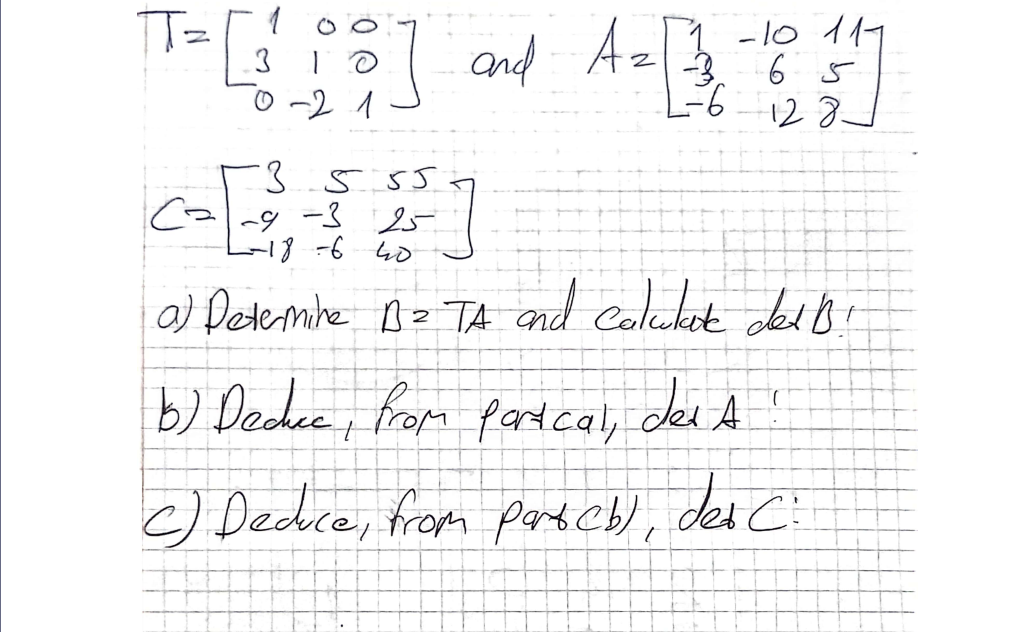 T = [ 1 0 0
3 1 0
0 -2 1 ] and A = [ 1 -10 11
-3 6 5
-6 12 8 ]
C = [ 3 5 55
-9 -3 25
-18 -6 40 ]
a) Determine B = TA and calculate det B!
b) Deduce, from part (a), det A!
c) Deduce, from part (b), det C: